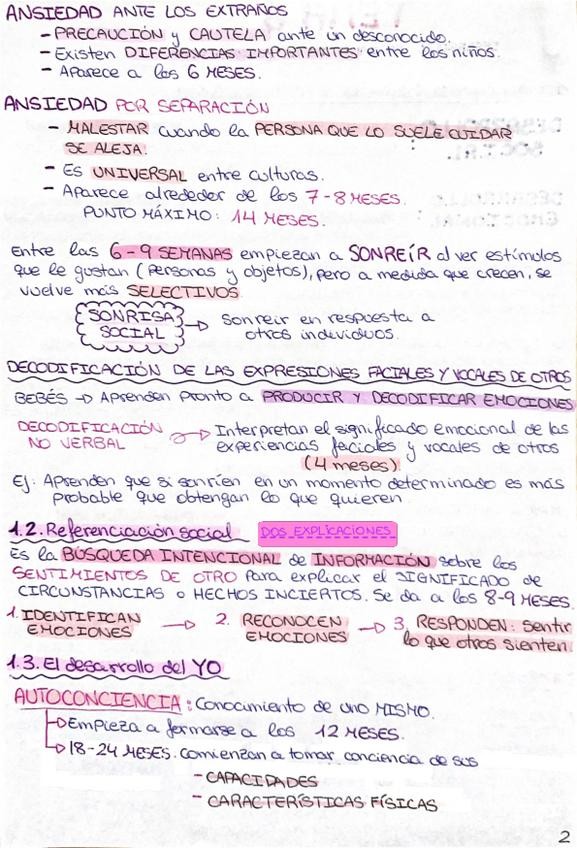 ANSIEDAD ANTE LOS EXTRAÑOS
- PRECAUCIÓN y CAUTELA ante un desconocido.
- Existen DIFERENCIAS IMPORTANTES entre los niños.
- Aparece a los 6 MESES.
ANSIEDAD POR SEPARACIÓN
- MALESTAR cuando la PERSONA QUE LO SUELE CUIDAR
SE ALEJA.
- Es UNIVERSAL entre culturas.
- Aparece alrededor de los 7-8 MESES.
PUNTO MÁXIMO: 14 MESES.
Entre las 6-9 SEMANAS empiezan a SONREÍR al ver estímulos
que le gustan (personas y objetos), pero a medida que crecen, se
vuelve más SELECTIVOS.
SONRISA SOCIAL → sonreir en respuesta a
otros individuos.
DECODIFICACIÓN DE LAS EXPRESIONES FACIALES Y VOCALES DE OTROS
BEBÉS → Aprenden pronto a PRODUCIR Y DECODIFICAR EMOCIONES
DECODIFICACIÓN NO VERBAL → Interpretan el significado emocional de las
experiencias faciales y vocales de otros
(4 meses)
Ej: Aprenden que si sonríen en un momento determinado es más
probable que obtengan lo que quieren.
1.2. Referenciación social DOS EXPLICACIONES
Es la BÚSQUEDA INTENCIONAL de INFORMACIÓN sobre los
SENTIMIENTOS DE OTRO para explicar el SIGNIFICADO de
CIRCUNSTANCIAS o HECHOS INCIERTOS. Se da a los 8-9 MESES.
1. IDENTIFICAN EMOCIONES → 2. RECONOCEN EMOCIONES → 3. RESPONDEN: Sentir
lo que otros sienten.
1.3. El desarrollo del YO
AUTOCONCIENCIA: Conocimiento de uno MISMO.
→ Empieza a formarse a los 12 MESES.
→ 18-24 MESES. Comienzan a tomar conciencia de sus
- CAPACIDADES
- CARACTERÍSTICAS FÍSICAS
2